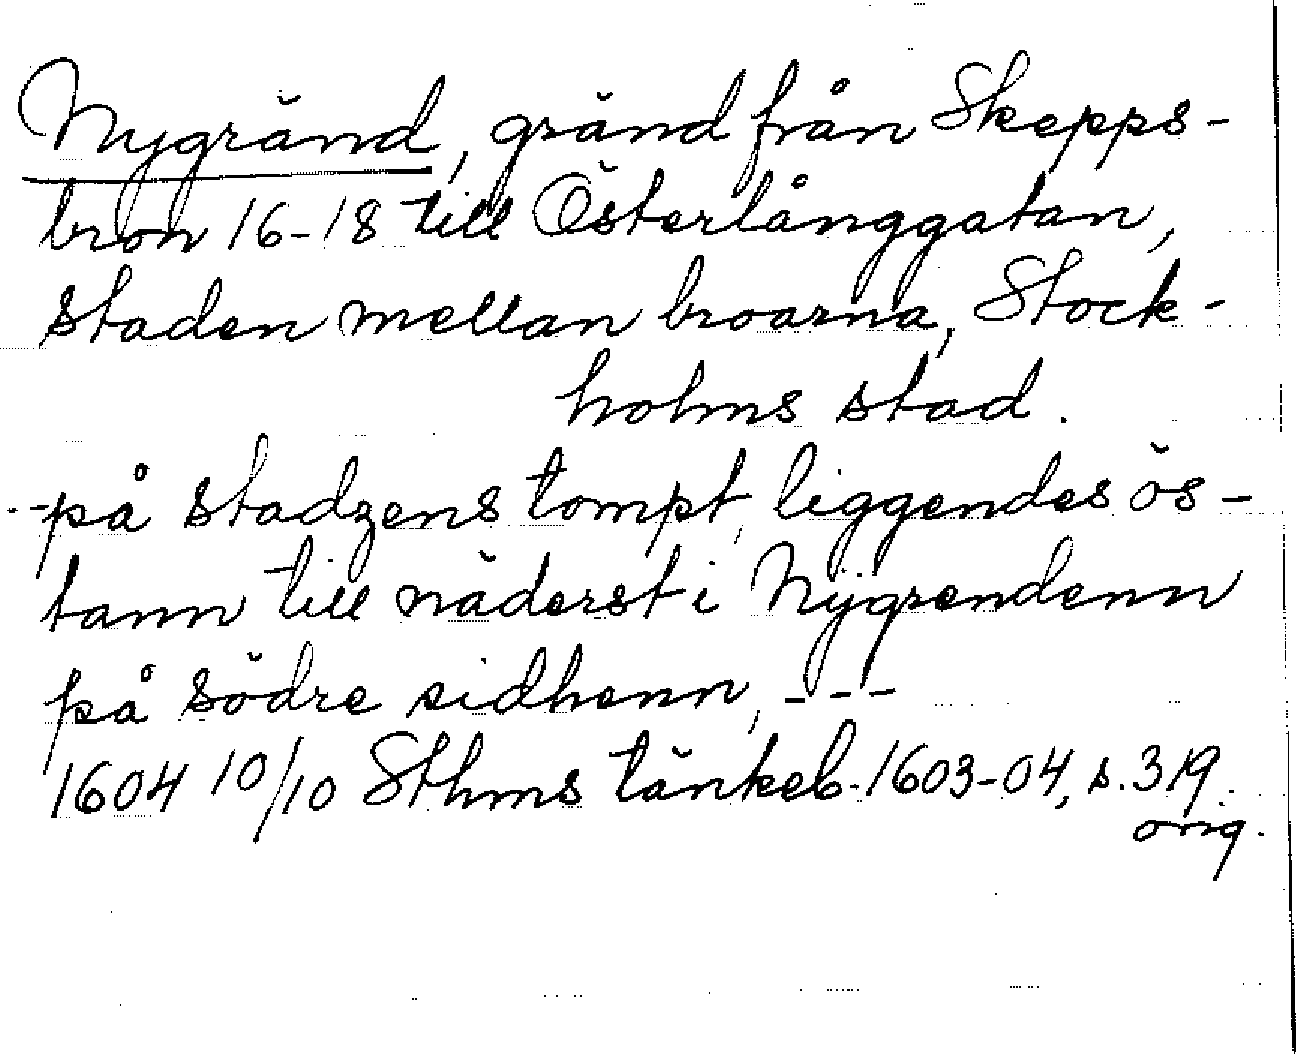 Nygränd, gränd från Skepps-
bron 16-18 till Österlånggatan,
staden mellan broarna, Stock-
holms stad.
--på stadzens tompt, liggendes ös-
tann till näderst i Nÿgrendenn
på södre sidhenn, ---
1604 10/10 Sthms tänkeb. 1603-04, s. 319.
orig.